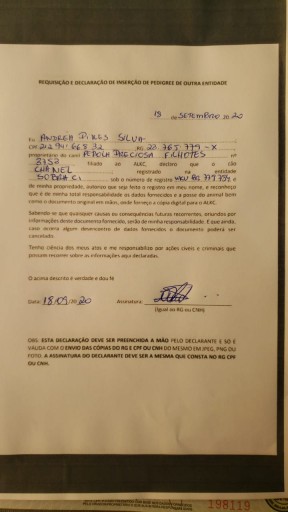 REQUISIÇÃO E DECLARAÇÃO DE INSERÇÃO DE PEDIGREE DE OUTRA ENTIDADE
18 de SETEMBRO de 20 20
Eu ANDREA PIRES SILVA
CPF 212 RG 23 765 779-X
proprietário do canil PEDOLA PRECIOSA FILHOTES nº
3752 filiado ao ALKC, declaro que o cão
CHANEL registrado na entidade
SOBRACI sob o número de registro é
de minha propriedade, autorizo que seja feito o registro em meu nome, e reconheço
que é de minha total responsabilidade os dados fornecidos e a posse do animal bem
como o documento original em mãos, onde forneço a cópia digital para o ALKC.
Sabendo-se que quaisquer causas ou consequências futuras recorrentes, oriundos por
informações deste documento fornecido, serão de minha responsabilidade. E que ainda,
caso ocorra algum desencontro de dados fornecidos o documento poderá ser
cancelado.
Tenho ciência dos meus atos e me responsabilizo por ações cíveis e criminais que
possam recorrer sobre as informações aqui declaradas.
O acima descrito é verdade e dou fé
Data: 18/09/20 20 Assinatura:
(Igual ao RG ou CNH)
OBS: ESTA DECLARAÇÃO DEVE SER PREENCHIDA A MÃO PELO DECLARANTE E SÓ É
VÁLIDA COM O ENVIO DAS CÓPIAS DO RG E CPF OU CNH DO MESMO EM JPEG, PNG OU
FOTO. A ASSINATURA DO DECLARANTE DEVE SER A MESMA QUE CONSTA NO RG CPF
OU CNH.
198119